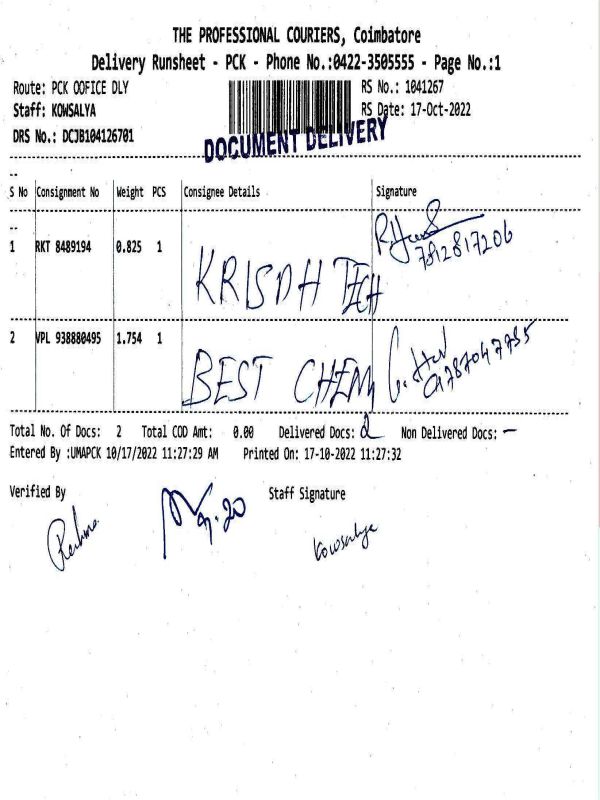 THE PROFESSIONAL COURIERS, Coimbatore
Delivery Runsheet - PCK - Phone No.:0422-3505555 - Page No.:1
Route: PCK OOFICE DLY RS No.: 1041267
Staff: KOWSALYA RS Date: 17-Oct-2022
DRS No.: DCJB104126701
DOCUMENT DELIVERY
S No Consignment No Weight PCS Consignee Details Signature
1 RKT 8489194 0.825 1 KRISDH TECH 7812817206
2 VPL 938880495 1.754 1 BEST CHEM
Total No. Of Docs: 2 Total COD Amt: 0.00 Delivered Docs: 2 Non Delivered Docs: -
Entered By :UMAPCK 10/17/2022 11:27:29 AM Printed On: 17-10-2022 11:27:32
Verified By Staff Signature
Kowsalya